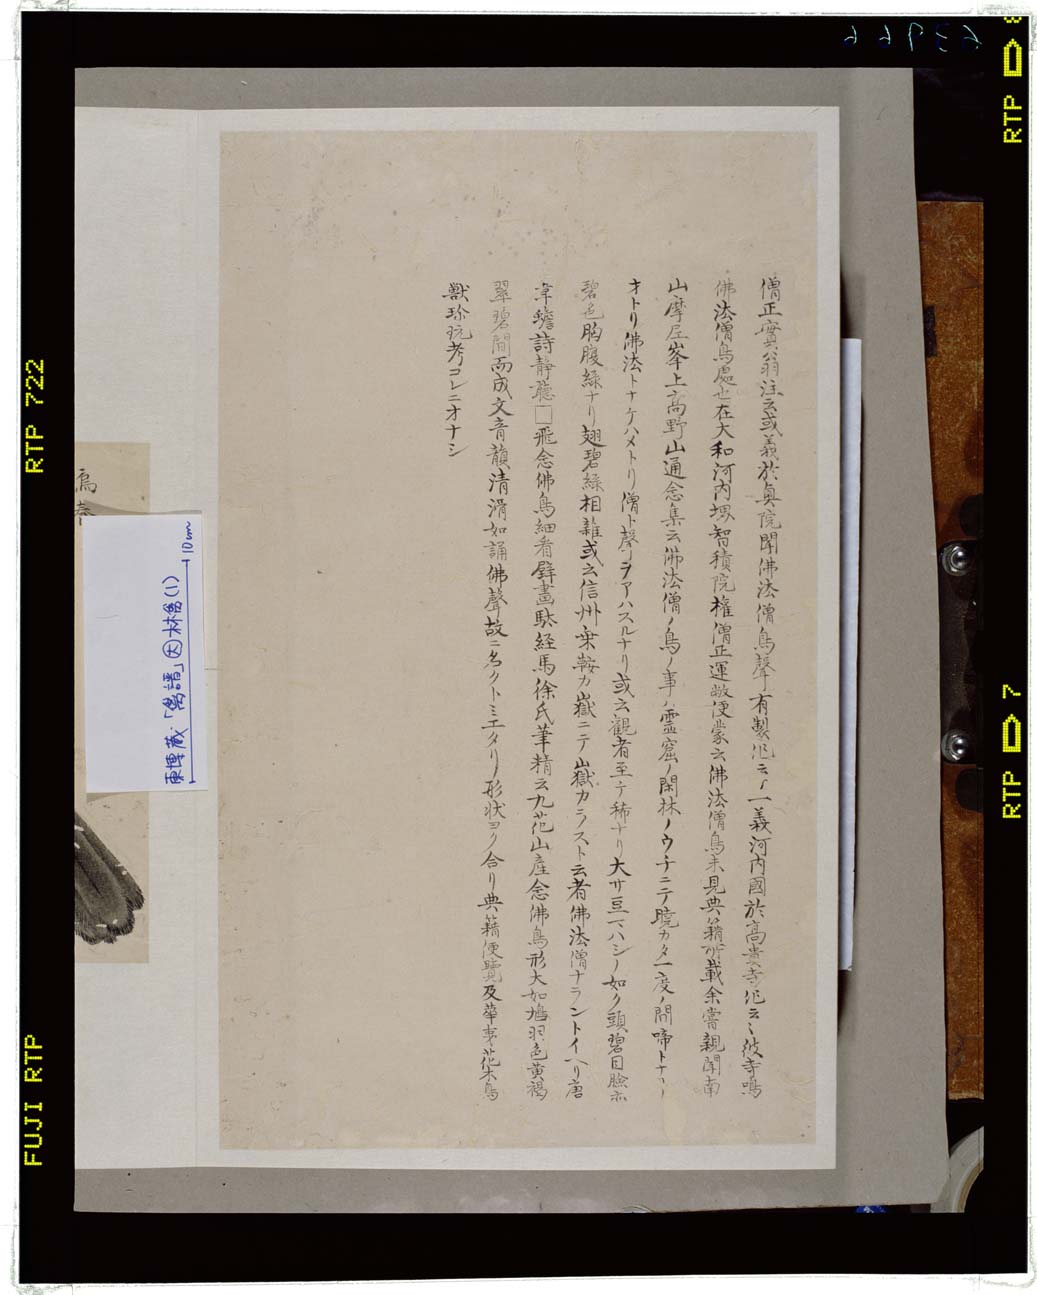 僧正實翁注云或義於奥院聞佛法僧鳥聲有製作云々一義河内國於高貴寺作云々彼寺鳴
佛法僧鳥處也在大和河内堺智積院権僧正運敞便蒙云佛法僧鳥未見典籍所載余嘗親聞南
山摩尼峯上高野山通念集云佛法僧ノ鳥ノ事ハ霊窟ノ閑林ノウチニテ暁カタ一度ノ間啼トナリ
オトリ佛法トナケハメトリ僧ト聲ヲアハスルナリ或云観者至テ稀ナリ大サ豆マハシノ如ク頭碧目臉亦
碧色胸腹緑ナリ翅碧緑相雑或云信州乗鞍カ嶽ニテ山嶽カラスト云者佛法僧ナラントイヘリ唐
韋蟾詩静聴□飛念佛鳥細看壁畫駄経馬徐氏筆精云九花山産念佛鳥形大如鳩羽色黄褐
翠碧間而成文音韻清滑如誦佛聲故ニ名クトミエタリ形状ヨク合リ典籍便覽及華夷花木鳥
獣珍玩考コレニオナシ
東博蔵「禽譜」 林禽(1)
10cm
63966
RTP 722
FUJI RTP
RTP
RTP 7